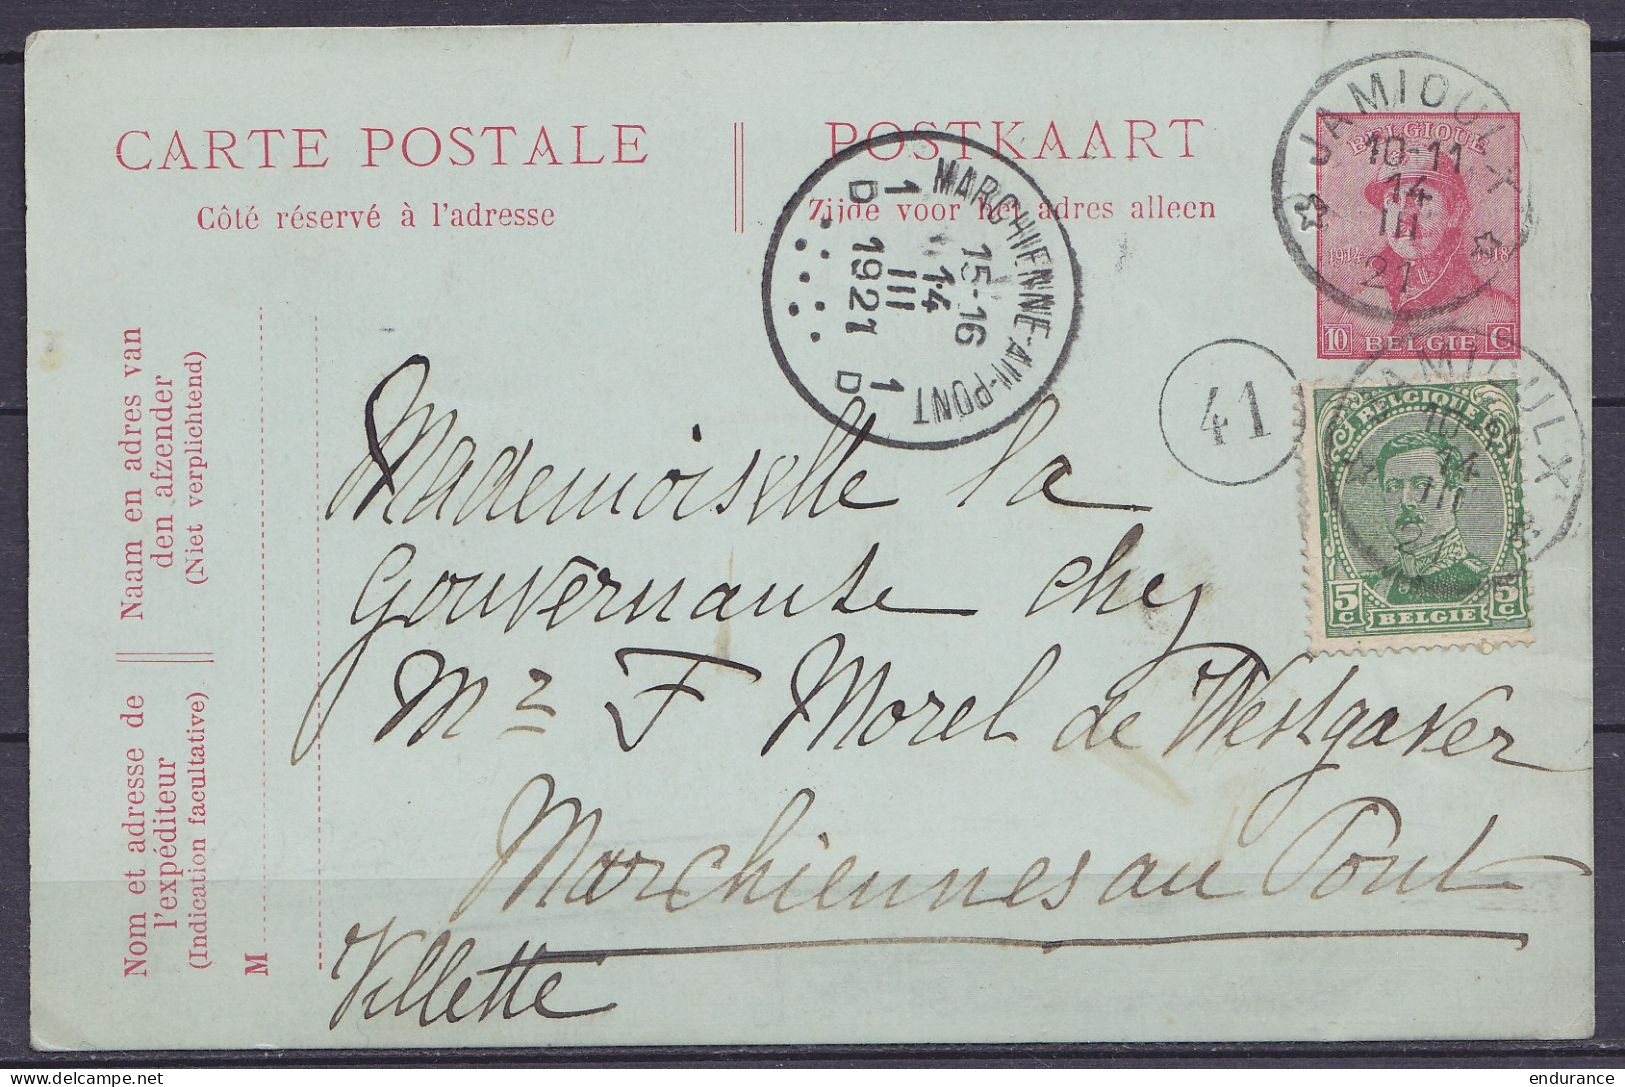 CARTE POSTALE
Côté réservé à l'adresse
POSTKAART
Zijde voor het adres alleen
JAMIOULX
10-11
14
III
21
BELGIQUE
1914 18
10 C
BELGIE
MARCHIENNE-AU-PONT
15-16
14
III
1921
1 1
D D
41
JAMIOULX
14
III
21
BELGIQUE
5 C 5 C
BELGIE
Naam en adres van
den afzender
(Niet verplichtend)
Nom et adresse de
l'expéditeur
(Indication facultative)
M
Mademoiselle la
Gouvernante chez
Mr F Morel de Westgaver
Marchiennes au Pont
Villette
endurance